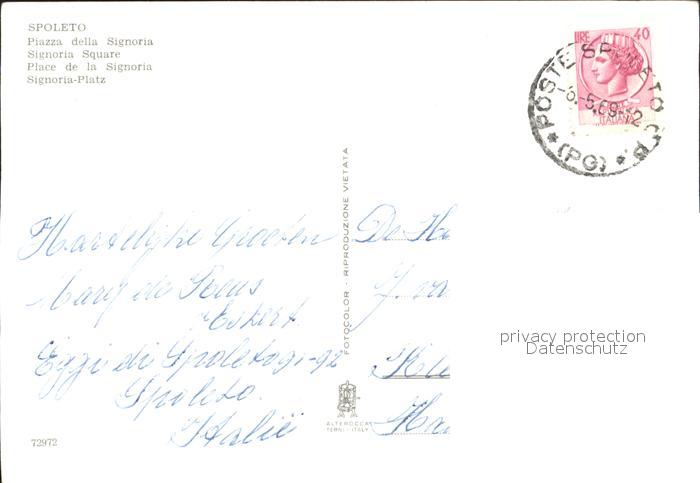 SPOLETO
Piazza della Signoria
Signoria Square
Place de la Signoria
Signoria-Platz
LIRE 40
ITALIANA
POSTE SPOLETO
-6.-5.69.-12
* (PG) *
FOTOCOLOR - RIPRODUZIONE VIETATA
Hartelijke Groeten
Mary de
Eggi di Spoleto 91-92
Spoleto.
Italië
De
J. va
privacy protection
Datenschutz
ALTEROCCA
TERNI - ITALY
72972